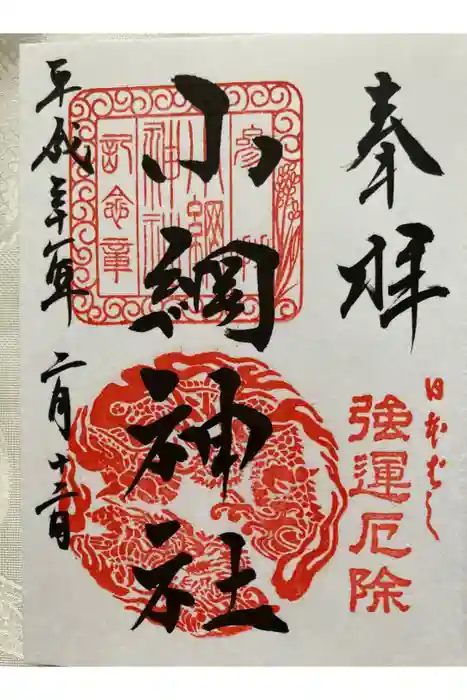 奉拝
日本ばし
強運厄除
小網神社
参拝
小網
神社
記念章
平成
年
二月十三日